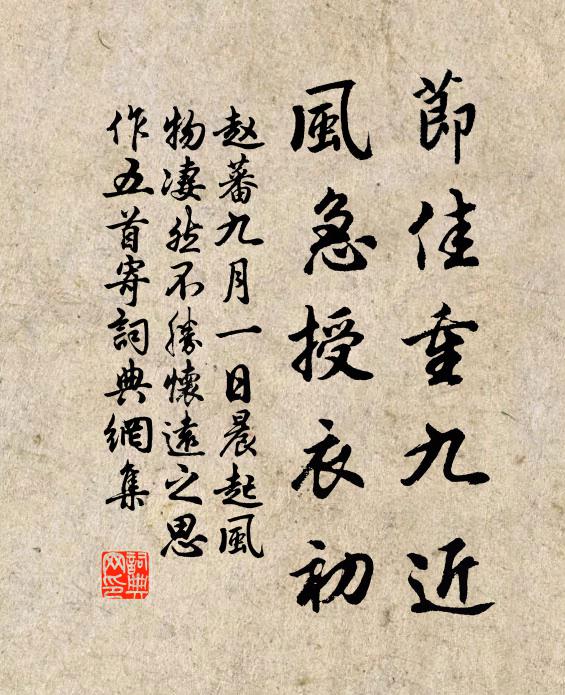 節佳重九近
風急授衣初
赵蕃九月一日晨起風
物凄然不勝懷遠之思
作五首寄詞典網集
詞典
网印